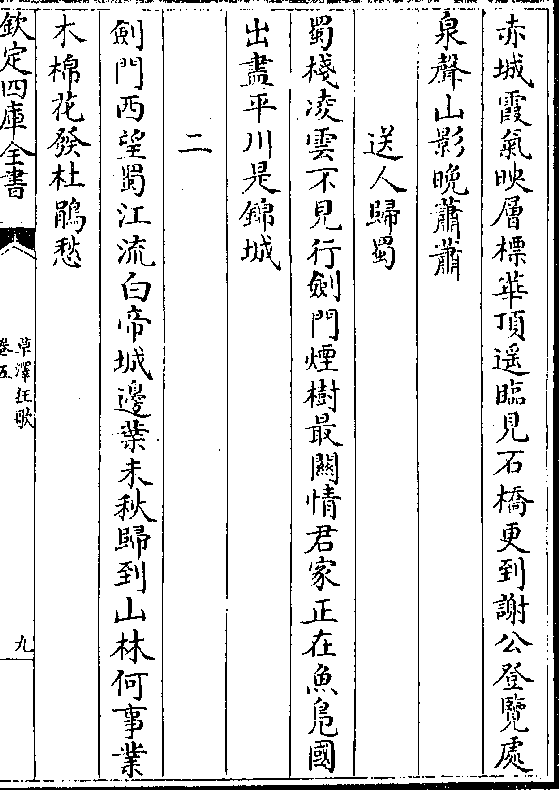 赤城霞氣映層標華頂遥臨見石橋更到謝公登覽處
泉聲山影晚蕭蕭
送人歸蜀
蜀棧凌雲不見行劍門煙樹最闗情君家正在魚鳬國
出盡平川是錦城
二
劍門西望蜀江流白帝城邊葉未秋歸到山林何事業
木棉花發杜鵑愁
欽定四庫全書
草澤狂歌
卷五
九